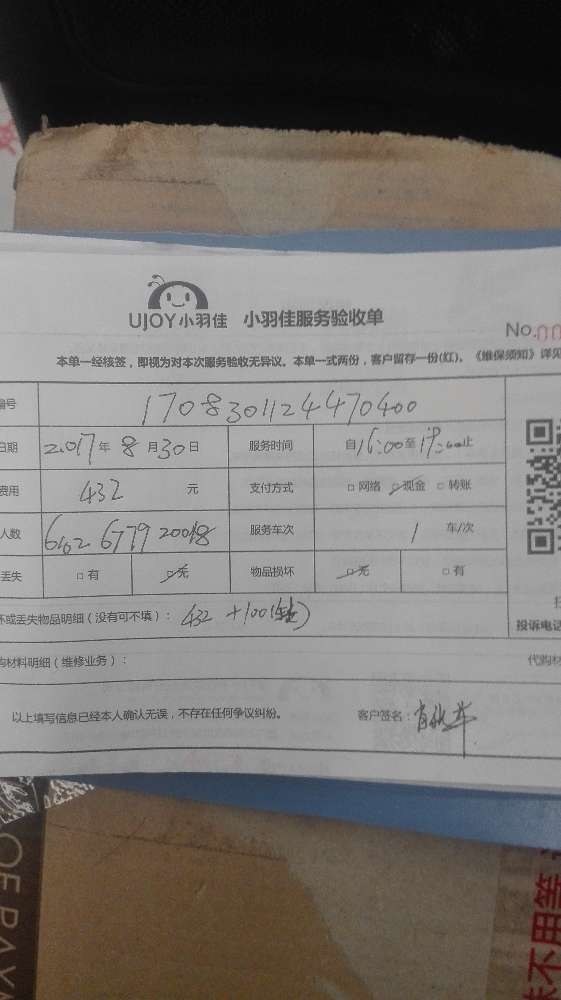 UJOY小羽佳 小羽佳服务验收单
No.00
本单一经核签，即视为对本次服务验收无异议。本单一式两份，客户留存一份(红)。《维保须知》详见
编号 170830112447040​0
日期 2017年8月30日 服务时间 自16:00至 止
费用 432 元 支付方式 □网络 □现金 □转账
人数 6779 服务车次 1 车/次
丢失 □有 □无 物品损坏 □无 □有
坏或丢失物品明细（没有可不填）： 432 +100
投诉电话
购材料明细（维修业务）： 代购材
以上填写信息已经本人确认无误，不存在任何争议纠纷。 客户签名：
OF PAY
不用等